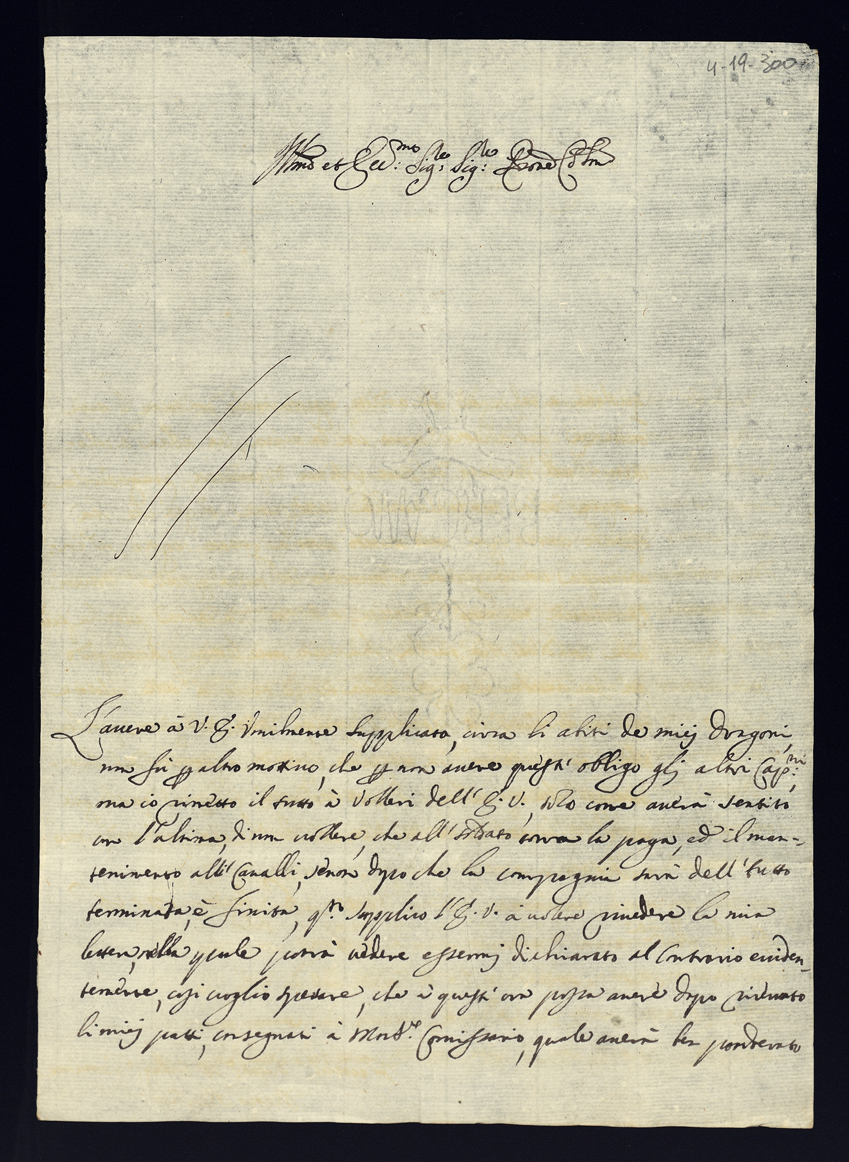 4-19-300
Illmo et Ecc:mo Sig:re Sig:re Prone Col:mo
L'avere à V. E. Vmilmente Supplicato, circa li abiti de miej Dragoni,
non fù p altro mottivo, che p non avere questi obligo glj altri Cap:ni;
ma io rimetto il tutto à Volleri dell'E. V., solo come averà Sentito
con l'altima, di non vollere, che all'Soldato corra la paga, ed il man-
tenimento alli Cavalli, senon dopo che la compagnia sarà dell'tutto
terminata, è finita, Supplico l'E. V. à volere rivedere la mia
lettera, nella quale potrà vedere essermj dichiarato al Contrario eviden-
temente, cosi voglio sperare, che à quest'ora possa avere dopo ricevuto
li miej patti, consegnati à Comissario, quale averà ben ponderato